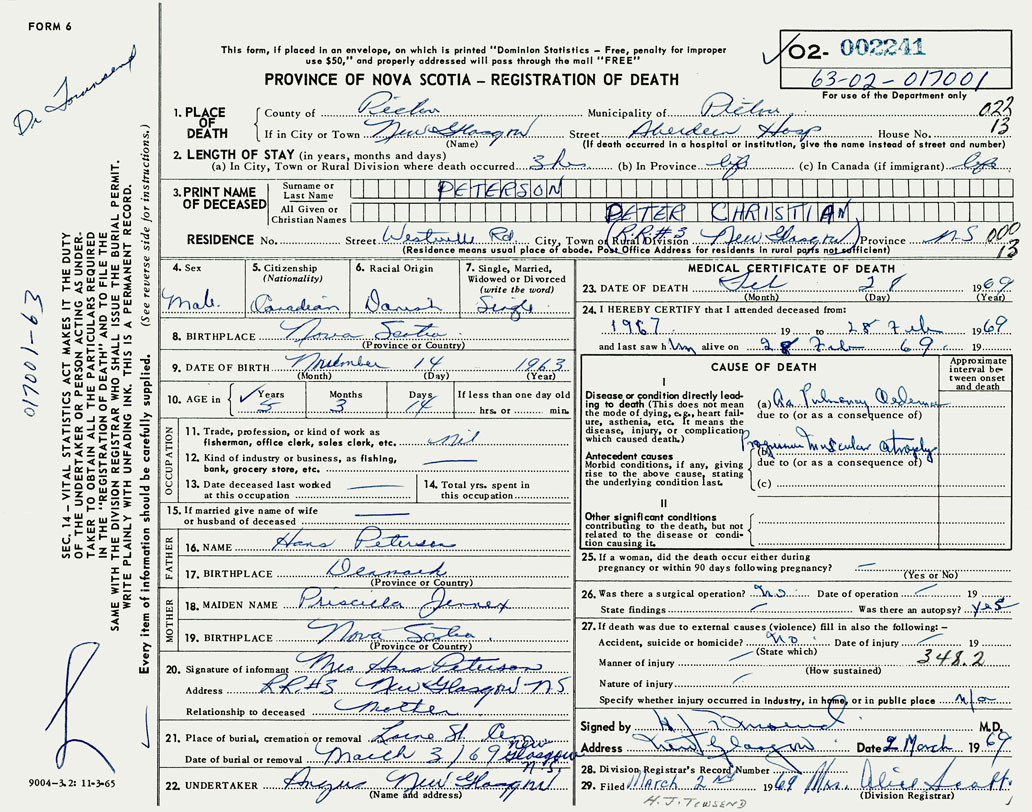 FORM 6
Dr Townsend
This form, if placed in an envelope, on which is printed "Dominion Statistics – Free, penalty for improper
use $50," and properly addressed will pass through the mail "FREE"
PROVINCE OF NOVA SCOTIA – REGISTRATION OF DEATH
✓O2- 002241
63-02-017001
For use of the Department only
023
13
1. PLACE OF DEATH
County of Pictou Municipality of Pictou
If in City or Town New Glasgow Street Aberdeen Hosp House No.
(Name) (If death occurred in a hospital or institution, give the name instead of street and number)
2. LENGTH OF STAY (in years, months and days)
(a) In City, Town or Rural Division where death occurred 3 hrs (b) In Province life (c) In Canada (if immigrant) life
3. PRINT NAME OF DECEASED
Surname or Last Name PETERSON
All Given or Christian Names PETER CHRISTIAN
RESIDENCE No. Street Westville Rd City, Town or Rural Division (R.R#3 New Glasgow) Province NS
(Residence means usual place of abode. Post Office Address for residents in rural parts not sufficient)
000
13
4. Sex Male
5. Citizenship (Nationality) Canadian
6. Racial Origin Danish
7. Single, Married, Widowed or Divorced (write the word) Single
8. BIRTHPLACE Nova Scotia
(Province or Country)
9. DATE OF BIRTH November 14 1963
(Month) (Day) (Year)
10. AGE in ✓ Years 5 Months 3 Days 14 If less than one day old hrs. or min.
OCCUPATION
11. Trade, profession, or kind of work as fisherman, office clerk, sales clerk, etc. nil
12. Kind of industry or business, as fishing, bank, grocery store, etc.
13. Date deceased last worked at this occupation
14. Total yrs. spent in this occupation
15. If married give name of wife or husband of deceased
FATHER
16. NAME Hans Peterson
17. BIRTHPLACE Denmark
(Province or Country)
MOTHER
18. MAIDEN NAME Priscilla Jennex
19. BIRTHPLACE Nova Scotia
(Province or Country)
20. Signature of informant Mrs Hans Peterson
Address R.R#3 New Glasgow NS
Relationship to deceased Mother
21. Place of burial, cremation or removal Lorne St.
Date of burial or removal March 3/69 New Glasgow N.S.
22. UNDERTAKER Angus New Glasgow
(Name and address)
MEDICAL CERTIFICATE OF DEATH
23. DATE OF DEATH Feb 28 1969
(Month) (Day) (Year)
24. I HEREBY CERTIFY that I attended deceased from:
1967 19 to 28 Feb 1969
and last saw him alive on 28 Feb 69. 19
CAUSE OF DEATH
Approximate interval between onset and death
I
Disease or condition directly leading to death (This does not mean the mode of dying, e.g., heart failure, asthenia, etc. It means the disease, injury, or complication which caused death.)
(a) Pulmonary Oedema
due to (or as a consequence of)
Antecedent causes
Morbid conditions, if any, giving rise to the above cause, stating the underlying condition last.
(b) Progressive Muscular atrophy
due to (or as a consequence of)
(c)
II
Other significant conditions contributing to the death, but not related to the disease or condition causing it.
25. If a woman, did the death occur either during pregnancy or within 90 days following pregnancy?
(Yes or No)
26. Was there a surgical operation? No Date of operation 19
State findings Was there an autopsy? yes
27. If death was due to external causes (violence) fill in also the following:
Accident, suicide or homicide? No Date of injury 19
(State which)
Manner of injury 348.2
(How sustained)
Nature of injury
Specify whether injury occurred in industry, in home, or in public place n/a
Signed by H J Townsend M.D.
Address New Glasgow Date 2 March 1969
28. Division Registrar's Record Number
29. Filed March 2nd 1969 Mrs. Alice Scott
(Division Registrar)
H.J. TOWSEND
017001-63
SEC. 14 – VITAL STATISTICS ACT MAKES IT THE DUTY
OF THE UNDERTAKER OR PERSON ACTING AS UNDER-
TAKER TO OBTAIN ALL THE PARTICULARS REQUIRED
IN THE "REGISTRATION OF DEATH" AND TO FILE THE
SAME WITH THE DIVISION REGISTRAR WHO SHALL ISSUE THE BURIAL PERMIT.
WRITE PLAINLY WITH UNFADING INK. THIS IS A PERMANENT RECORD.
Every item of information should be carefully supplied. (See reverse side for instructions.)
9004-3.2: 11-3-65